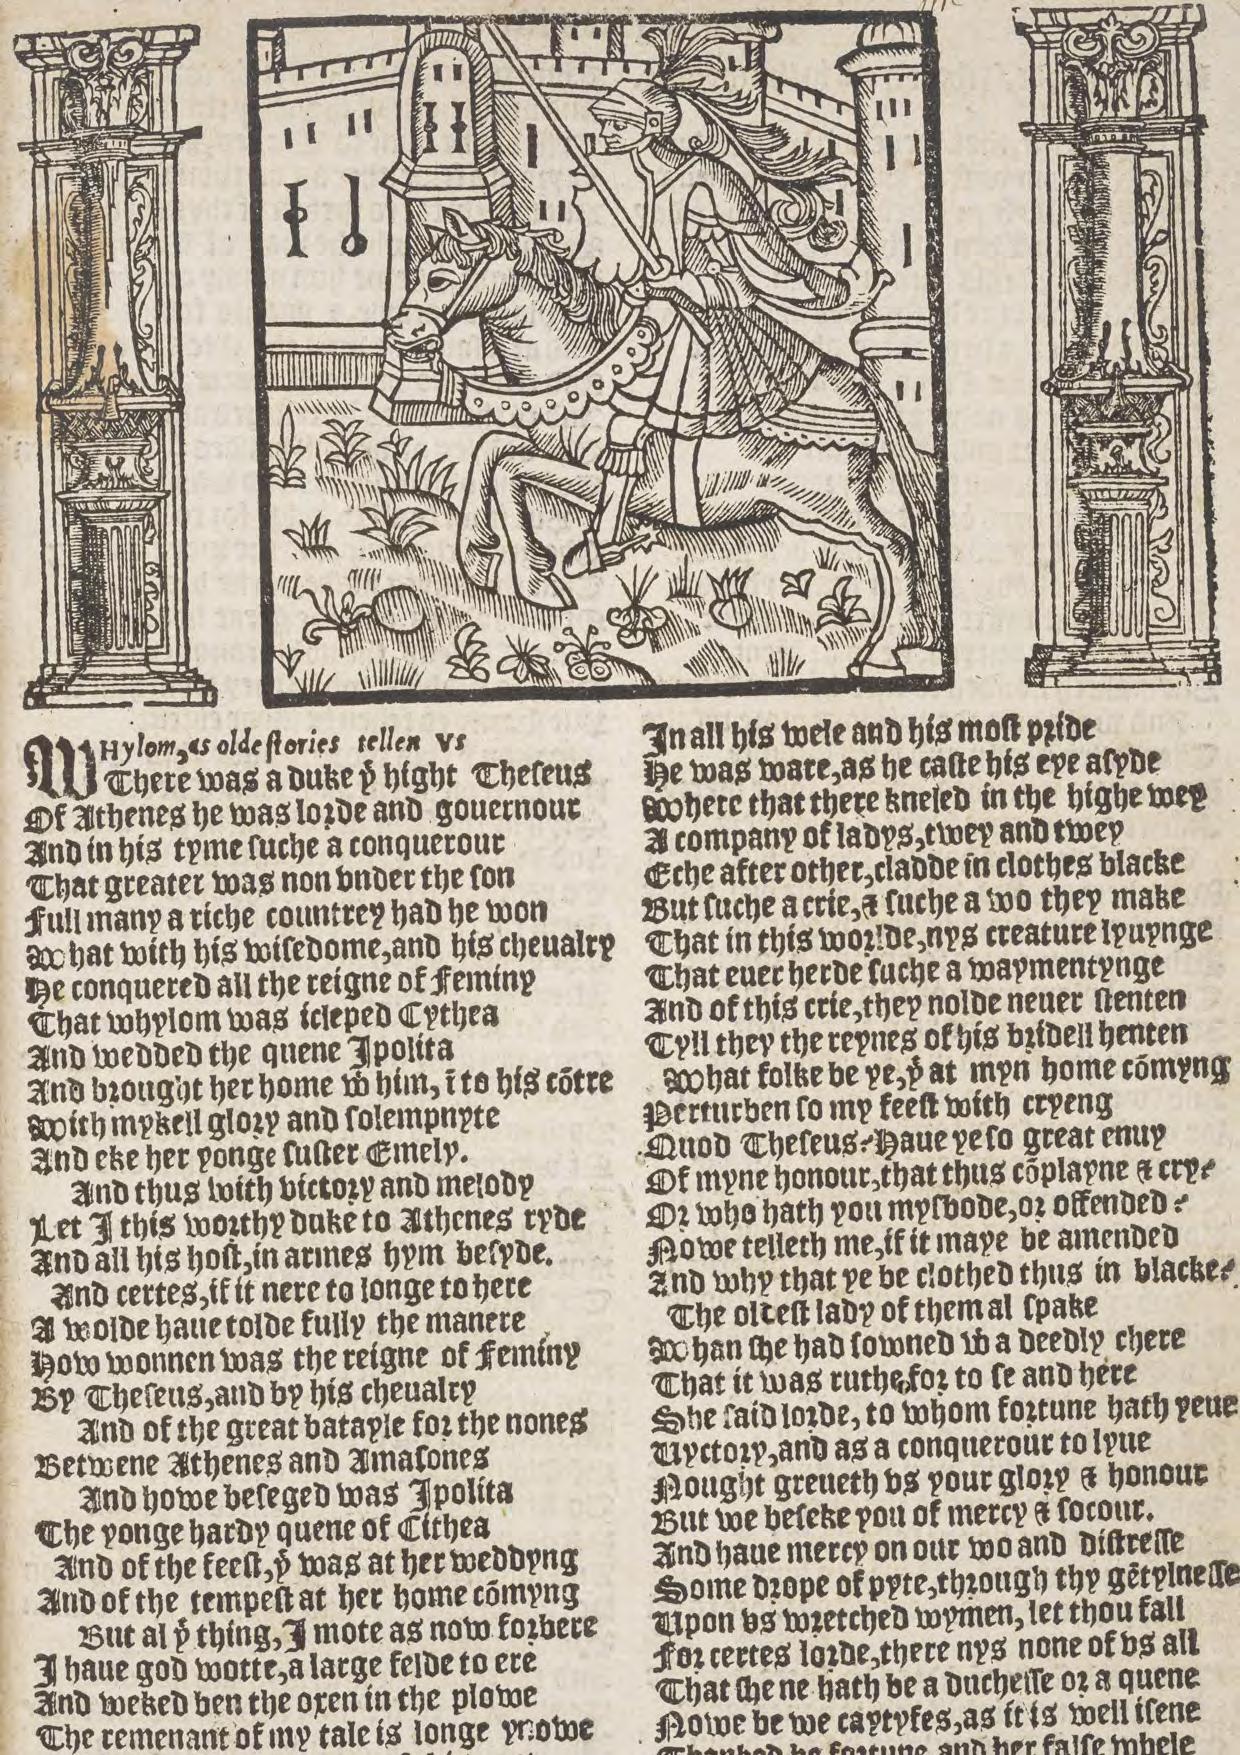 WHylom, as olde stories tellen vs
There was a duke yͭ hight Theseus
Of Athenes he was lorde and gouernour
And in his tyme suche a conquerour
That greater was non vnder the son
Full many a riche countrey had he won
What with his wisedome, and his cheualry
He conquered all the reigne of Feminy
That whylom was icleped Cythea
And wedded the quene Ipolita
And brought her home wͭ him, ī to his cōtre
With mykell glory and solempnyte
And eke her yonge suster Emely.
And thus with victory and melody
Let I this worthy duke to Athenes ryde
And all his host, in armes hym besyde.
And certes, if it nere to longe to here
A wolde haue tolde fully the manere
How wonnen was the reigne of Feminy
By Theseus, and by his cheualry
And of the great batayle for the nones
Betwene Athenes and Amasones
And howe beseged was Ipolita
The yonge hardy quene of Cithea
And of the feest, yͭ was at her weddyng
And of the tempest at her home cōmyng
But al yͭ thing, I mote as now forbere
I haue god wotte, a large felde to ere
And weked ben the oxen in the plowe
The remenant of my tale is longe ynowe
In all his wele and his most pride
He was ware, as he caste his eye asyde
Where that there kneled in the highe wey
A company of ladys, twey and twey
Eche after other, cladde in clothes blacke
But suche a crie, & suche a wo they make
That in this worlde, nys creature lyuynge
That euer herde suche a waymentynge
And of this crie, they nolde neuer stenten
Tyll they the reynes of his bridell henten
What folke be ye, yͭ at myn home cōmyng
Perturben so my feest with cryeng
Quod Theseus? Haue ye so great enuy
Of myne honour, that thus cōplayne & cry?
Or who hath you mysbode, or offended?
Nowe telleth me, if it maye be amended
And why that ye be clothed thus in blacke?
The oldest lady of them al spake
Whan she had sowned wͭ a deedly chere
That it was ruthe, for to se and here
She said lorde, to whom fortune hath yeue
Vyctory, and as a conquerour to lyue
Nought greueth vs your glory & honour
But we beseke you of mercy & socour.
And haue mercy on our wo and distresse
Some drope of pyte, through thy gētylnesse
Upon vs wretched wymen, let thou fall
For certes lorde, there nys none of vs all
That she ne hath be a duchesse or a quene
Nowe be we caytyfes, as it is well isene
Thanked be fortune, and her false whele